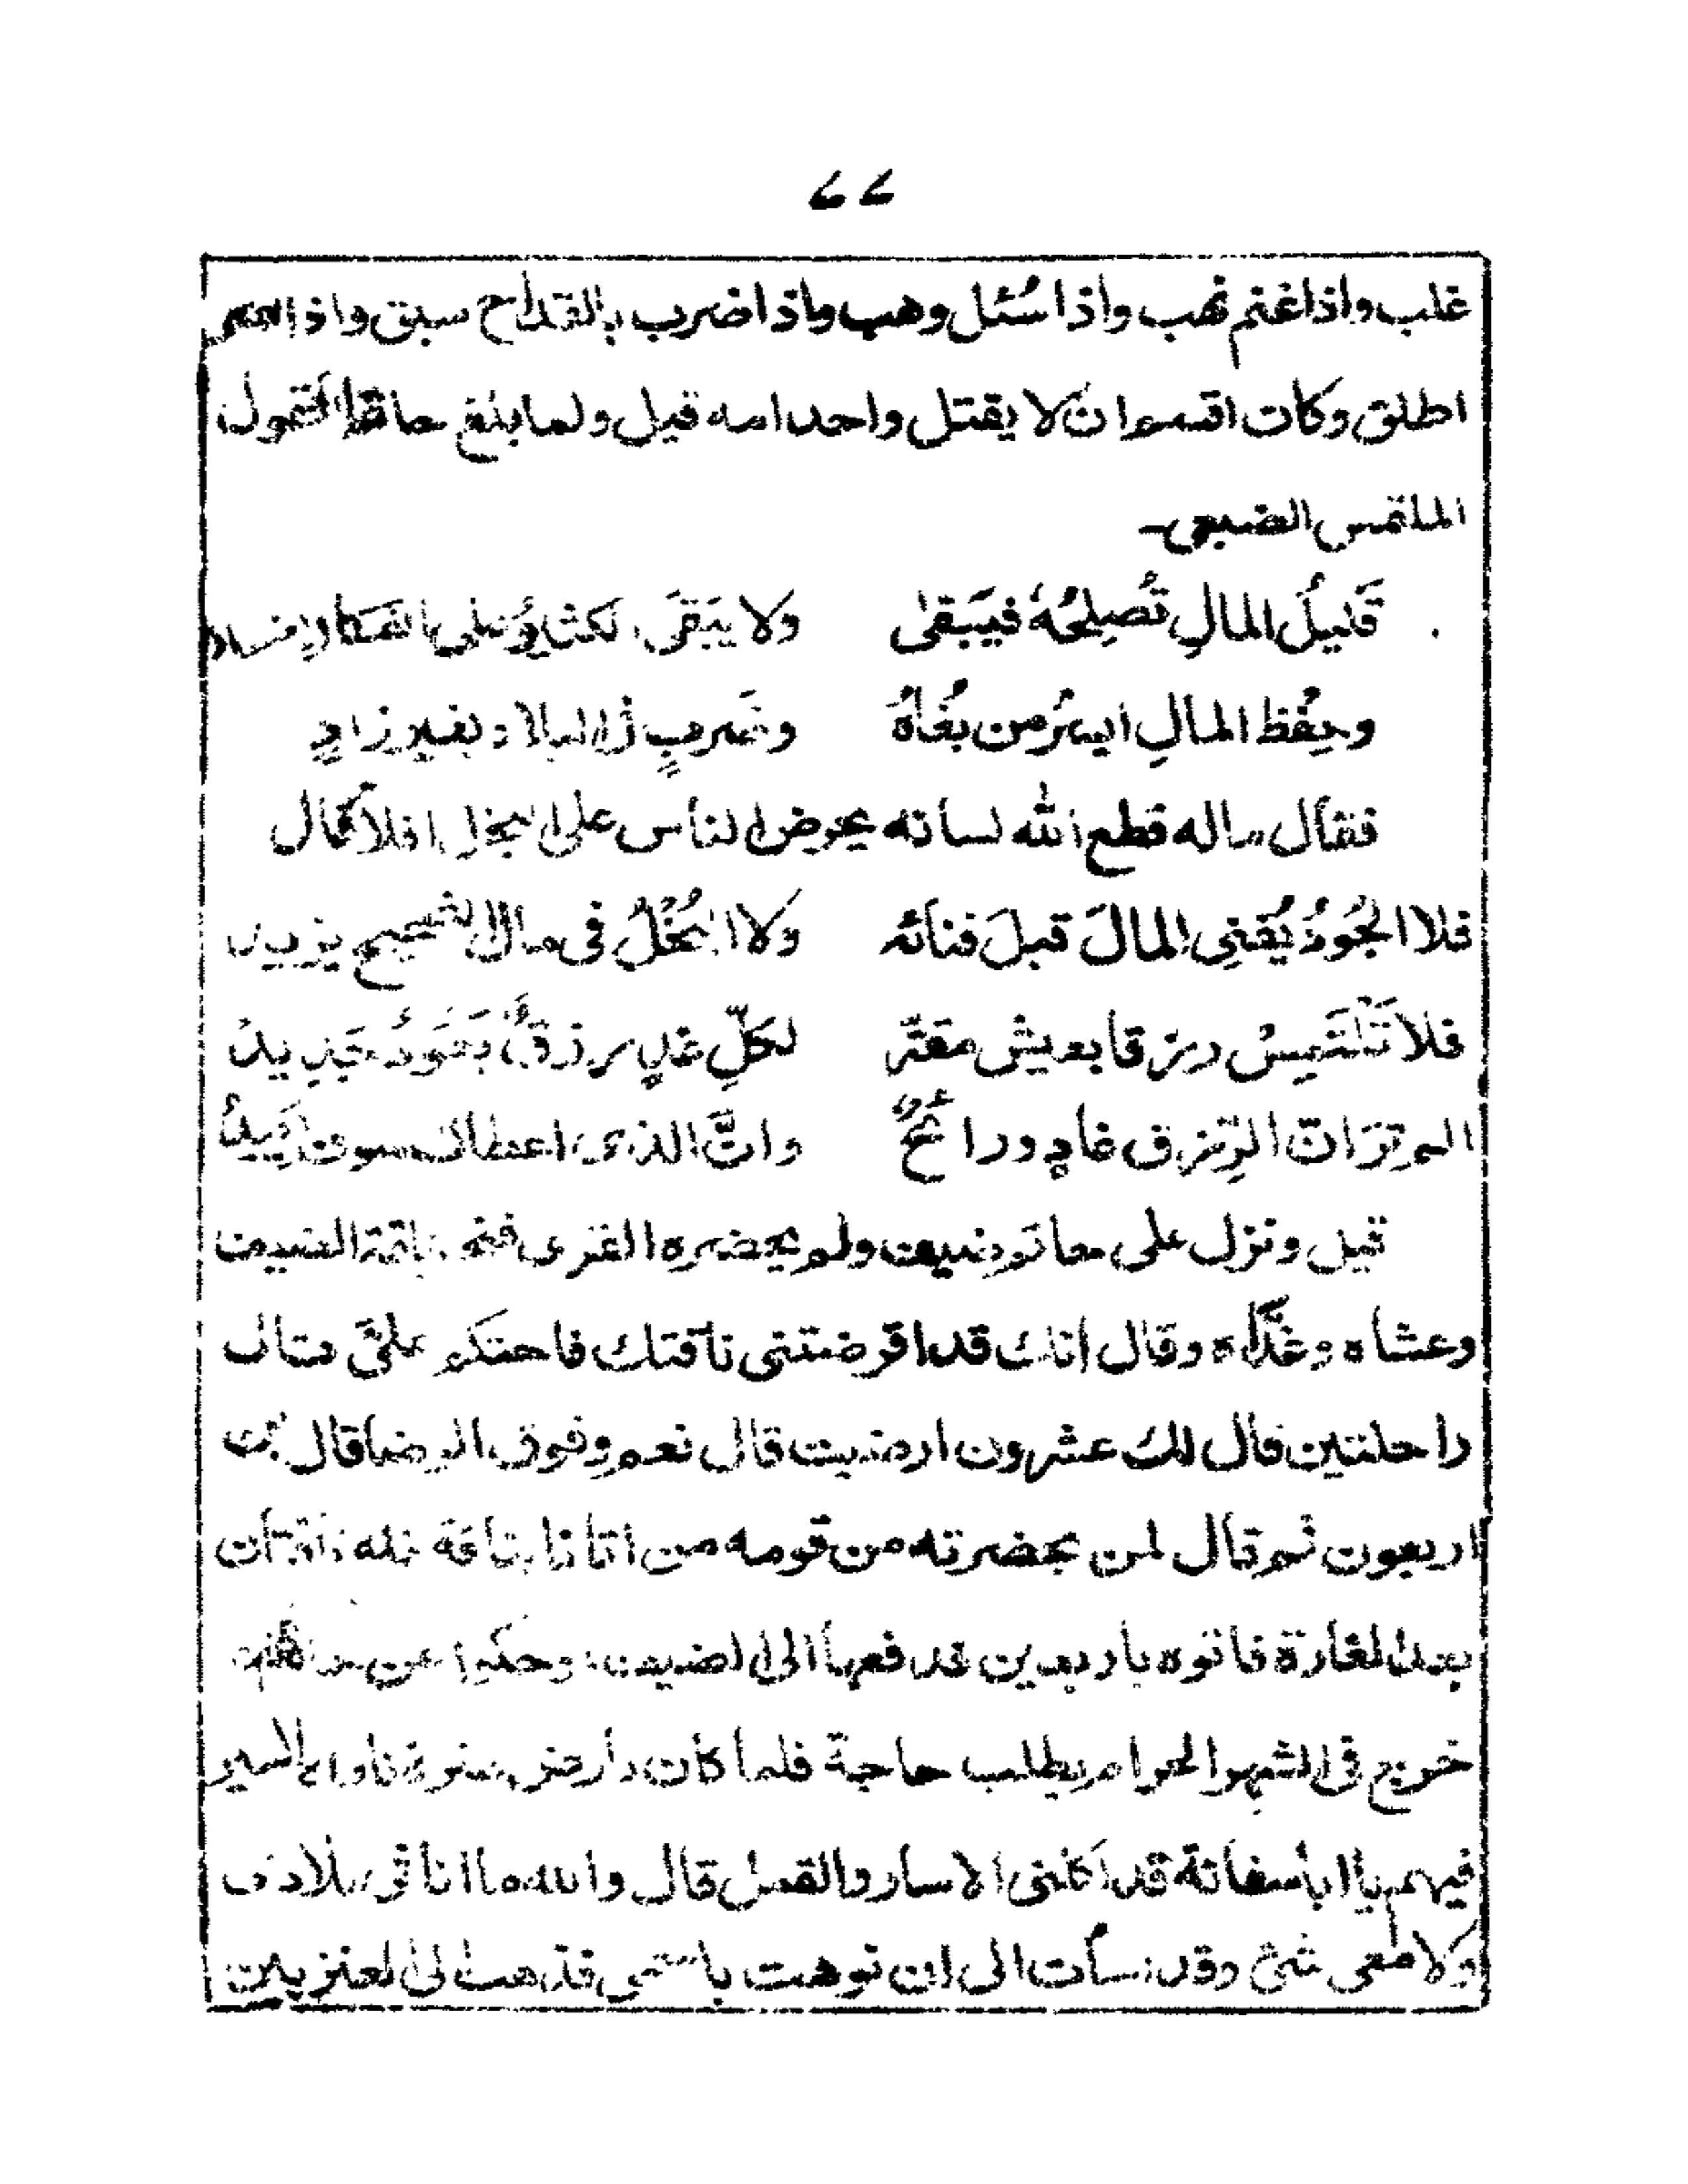 ٤٤
غلب واذا غنم نهب واذا سُئل وهب واذا ضرب بالقداح سبق واذا اسر
اطلق وكان اقسم ان لا يقتل واحد امه قيل ولما بلغ حاتما قول
الملتمس الضبعي
قَليلُ المالِ تُصلِحُهُ فيَبقى ولا يَبقَى الكثير على الفساد
وحِفظ المالِ ايسَرُ من بُغاهُ وضربٍ في البلاد بغير زادِ
فقال ماله قطع الله لسانه يحرض الناس على البخل افلا قال
فلا الجُودُ يُفنِى المالَ قبلَ فنائه ولا البُخْلُ في مال الشحيح يزيد
فلا تَلتَمِسْ رزقا بعيش مقتّر لكلِّ غدٍ رزقٌ يَعُودُ جَدِيدُ
الم تر انّ الرِّزق غادٍ ورائحٌ وانّ الذى اعطاك سوف يُعيدُ
قيل ونزل على حاتم ضيف ولم يحضره القرى فنحر ناقة الضيف
وعشاه وغدّاه وقال انك قد اقرضتنى ناقتك فاحتكم علىّ قال
راحلتين قال لك عشرون ارضيت قال نعم وفوق الرضا قال لك
اربعون ثم قال لمن بحضرته من قومه من اتانا بناقة فله ناقتان
بعد الغارة فاتوه باربعين فدفعها الى الضيف وحكوا عن حاتم
خرج فى الشهر الحرام يطلب حاجة فلما كان بارض عنزة ناداه اسير
فيهم يا ابا سفانة قد اكلنى الاسار والقمل قال والله ما انا فى بلادى
ولا معى شئ وقد اسأت الى ان نوهت باسمى فذهب الى العنزيين